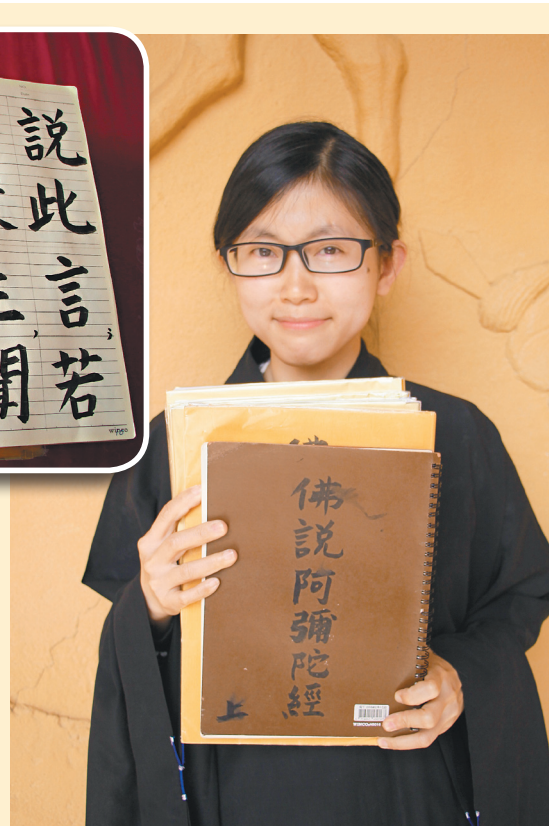 說此言；若
佛說阿彌陀經
上